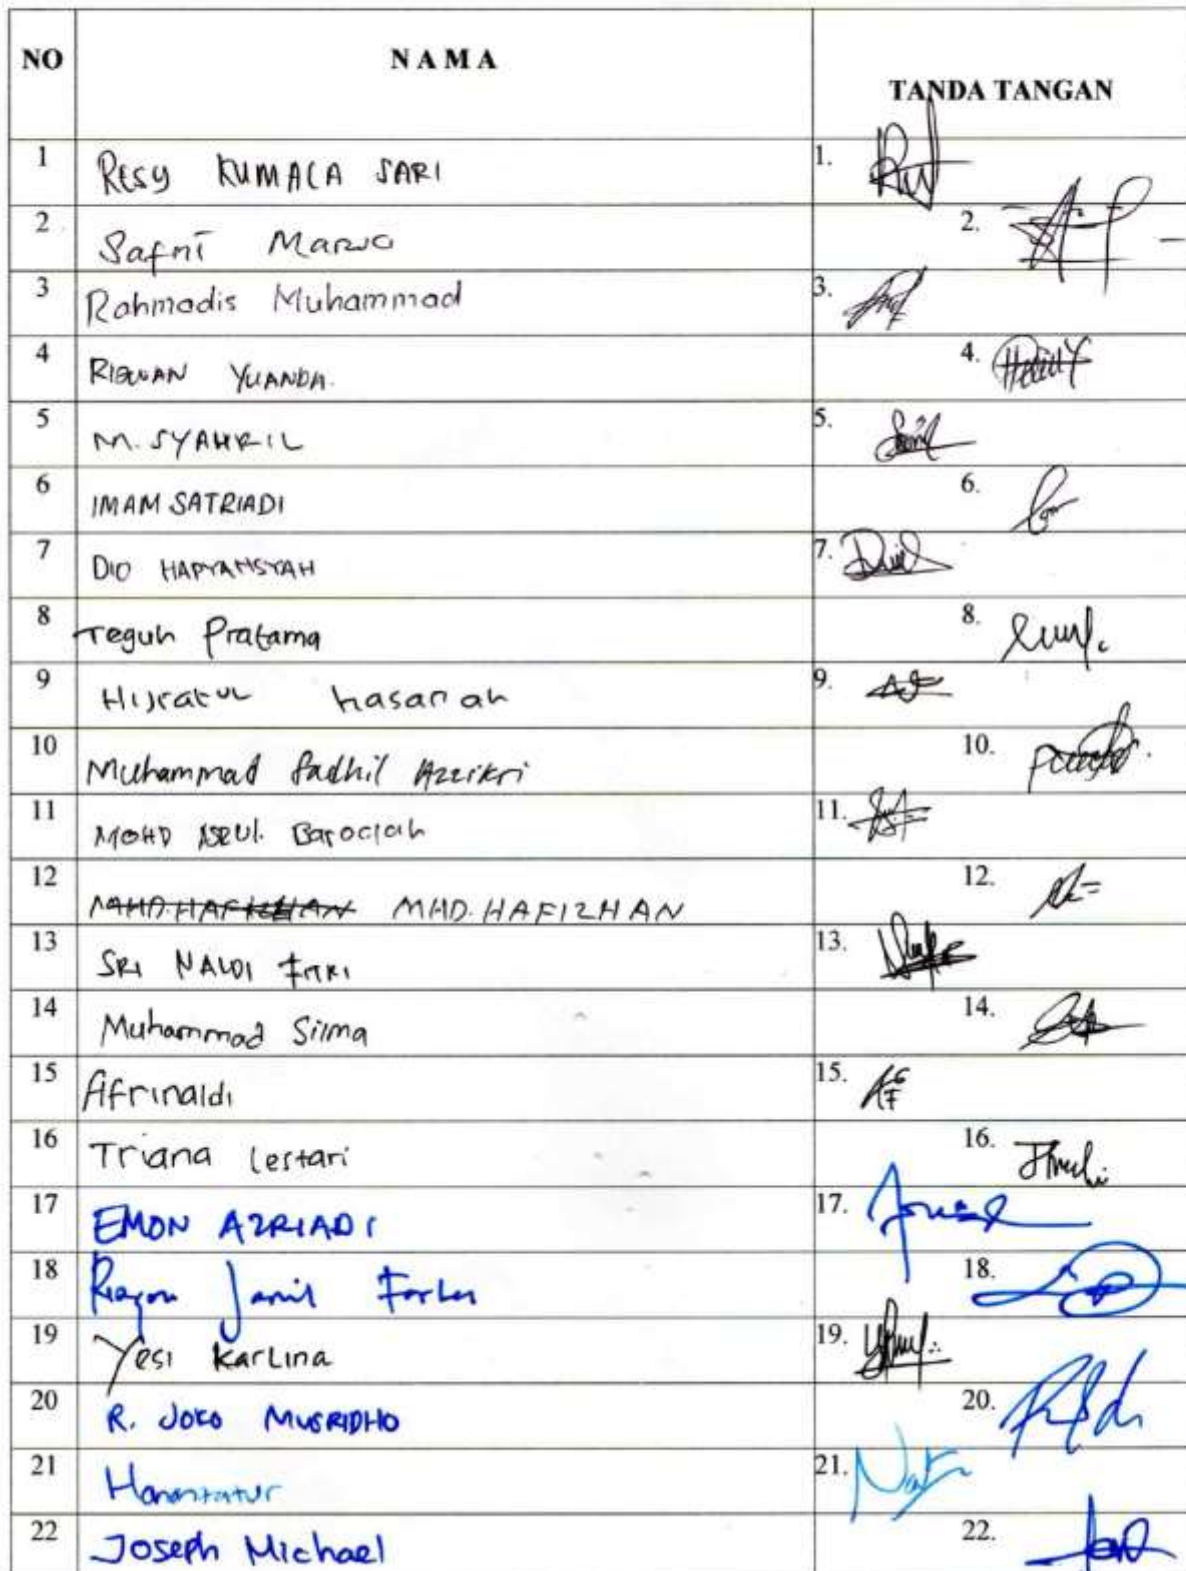 NO N A M A TANDA TANGAN
1 Resy KUMALA SARI 1.
2 Safni Marwa 2.
3 Rahmadis Muhammad 3.
4 RISWAN YUANDA. 4.
5 M. SYAHRIL 5.
6 IMAM SATRIADI 6.
7 DIO HAPYANSYAH 7.
8 Teguh Pratama 8.
9 Hijratul hasanah 9.
10 Muhammad Fadhil Azzikri 10.
11 MOHD ASRUL Barociah 11.
12 MHD.HAFIZHAN MHD.HAFIZHAN 12.
13 SRI NALDI FITRI 13.
14 Muhammad Silma 14.
15 Afrinaldi 15.
16 Triana lestari 16.
17 EMON AZRIADI 17.
18 Jamil 18.
19 Yesi Karlina 19.
20 R. JOKO MUSRIDHO 20.
21 21.
22 Joseph Michael 22.